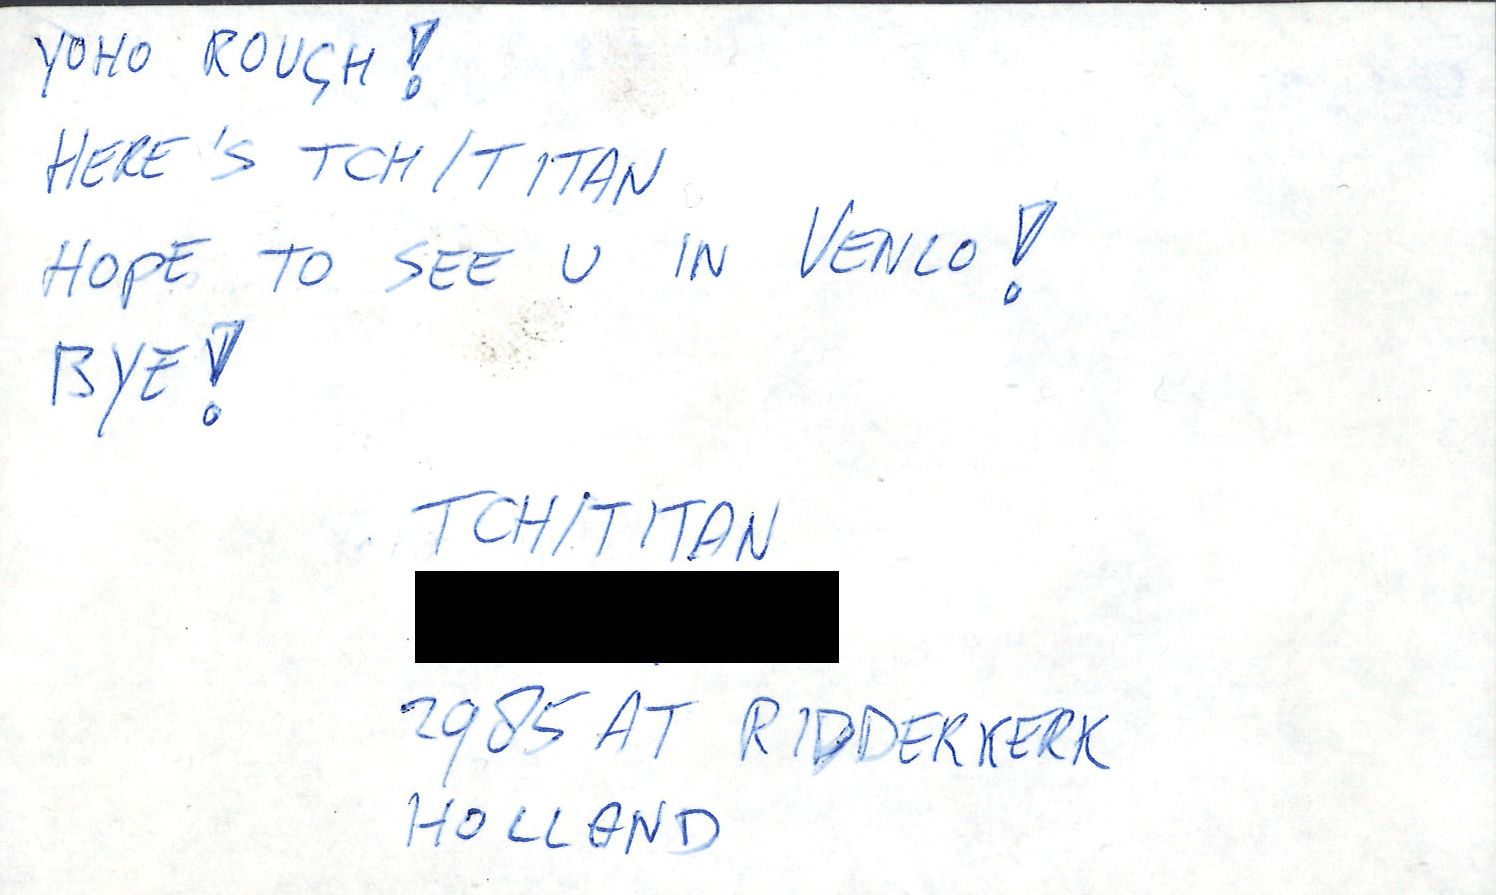 YOHO ROUGH!
HERE'S TCH/TITAN
HOPE TO SEE U IN VENLO!
BYE!
TCH/TITAN
2985 AT RIDDERKERK
HOLLAND